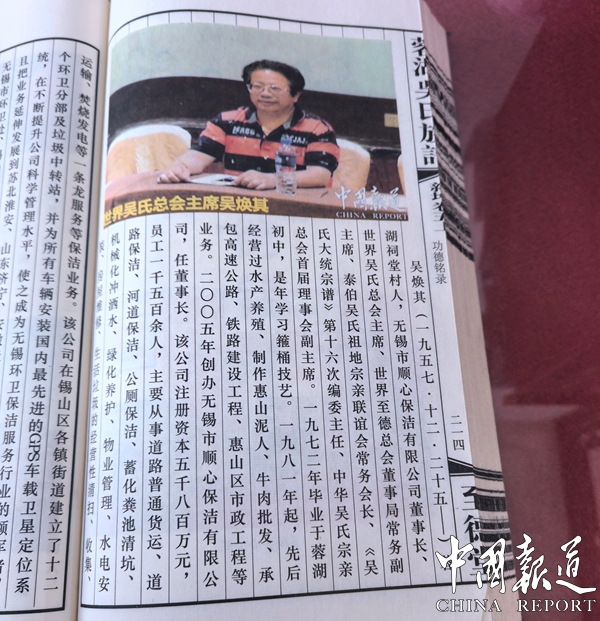 蓉湖吴氏族譜
卷之二
功德铭录
二一四
至德堂
世界吴氏总会主席吴焕其
中国报道
CHINA REPORT
吴焕其（一九五七·十二·二十五
湖祠堂村人，无锡市顺心保洁有限公司董事长、
世界吴氏总会主席、世界至德总会董事局常务副
主席、泰伯吴氏祖地宗亲联谊会常务会长、《吴
氏大统宗谱》第十六次编委主任、中华吴氏宗亲
总会首届理事会副主席。一九七二年毕业于蓉湖
初中，是年学习箍桶技艺。一九八一年起，先后
经营过水产养殖、制作惠山泥人、牛肉批发、承
包高速公路、铁路建设工程、惠山区市政工程等
业务。二〇〇五年创办无锡市顺心保洁有限公
司，任董事长。该公司注册资本五千八百万元，
员工一千五百余人，主要从事道路普通货运、道
路保洁、河道保洁、公厕保洁、蓄化粪池清坑、
机械化冲洒水、绿化养护、物业管理、水电安
生活垃圾的经营性清扫、收集、
运输、焚烧发电等一条龙服务等保洁业务。该公司在锡山区各镇街道建立了十二
个环卫分部及垃圾中转站，并为所有车辆安装国内最先进的GPS车载卫星定位系
统，在不断提升公司科学管理水平，使之成为无锡环卫保洁服务行业的领军者，
且把业务延伸发展到苏北淮安、山东济宁、安徽
无锡市环卫处、锡
中国报道
CHINA REPORT